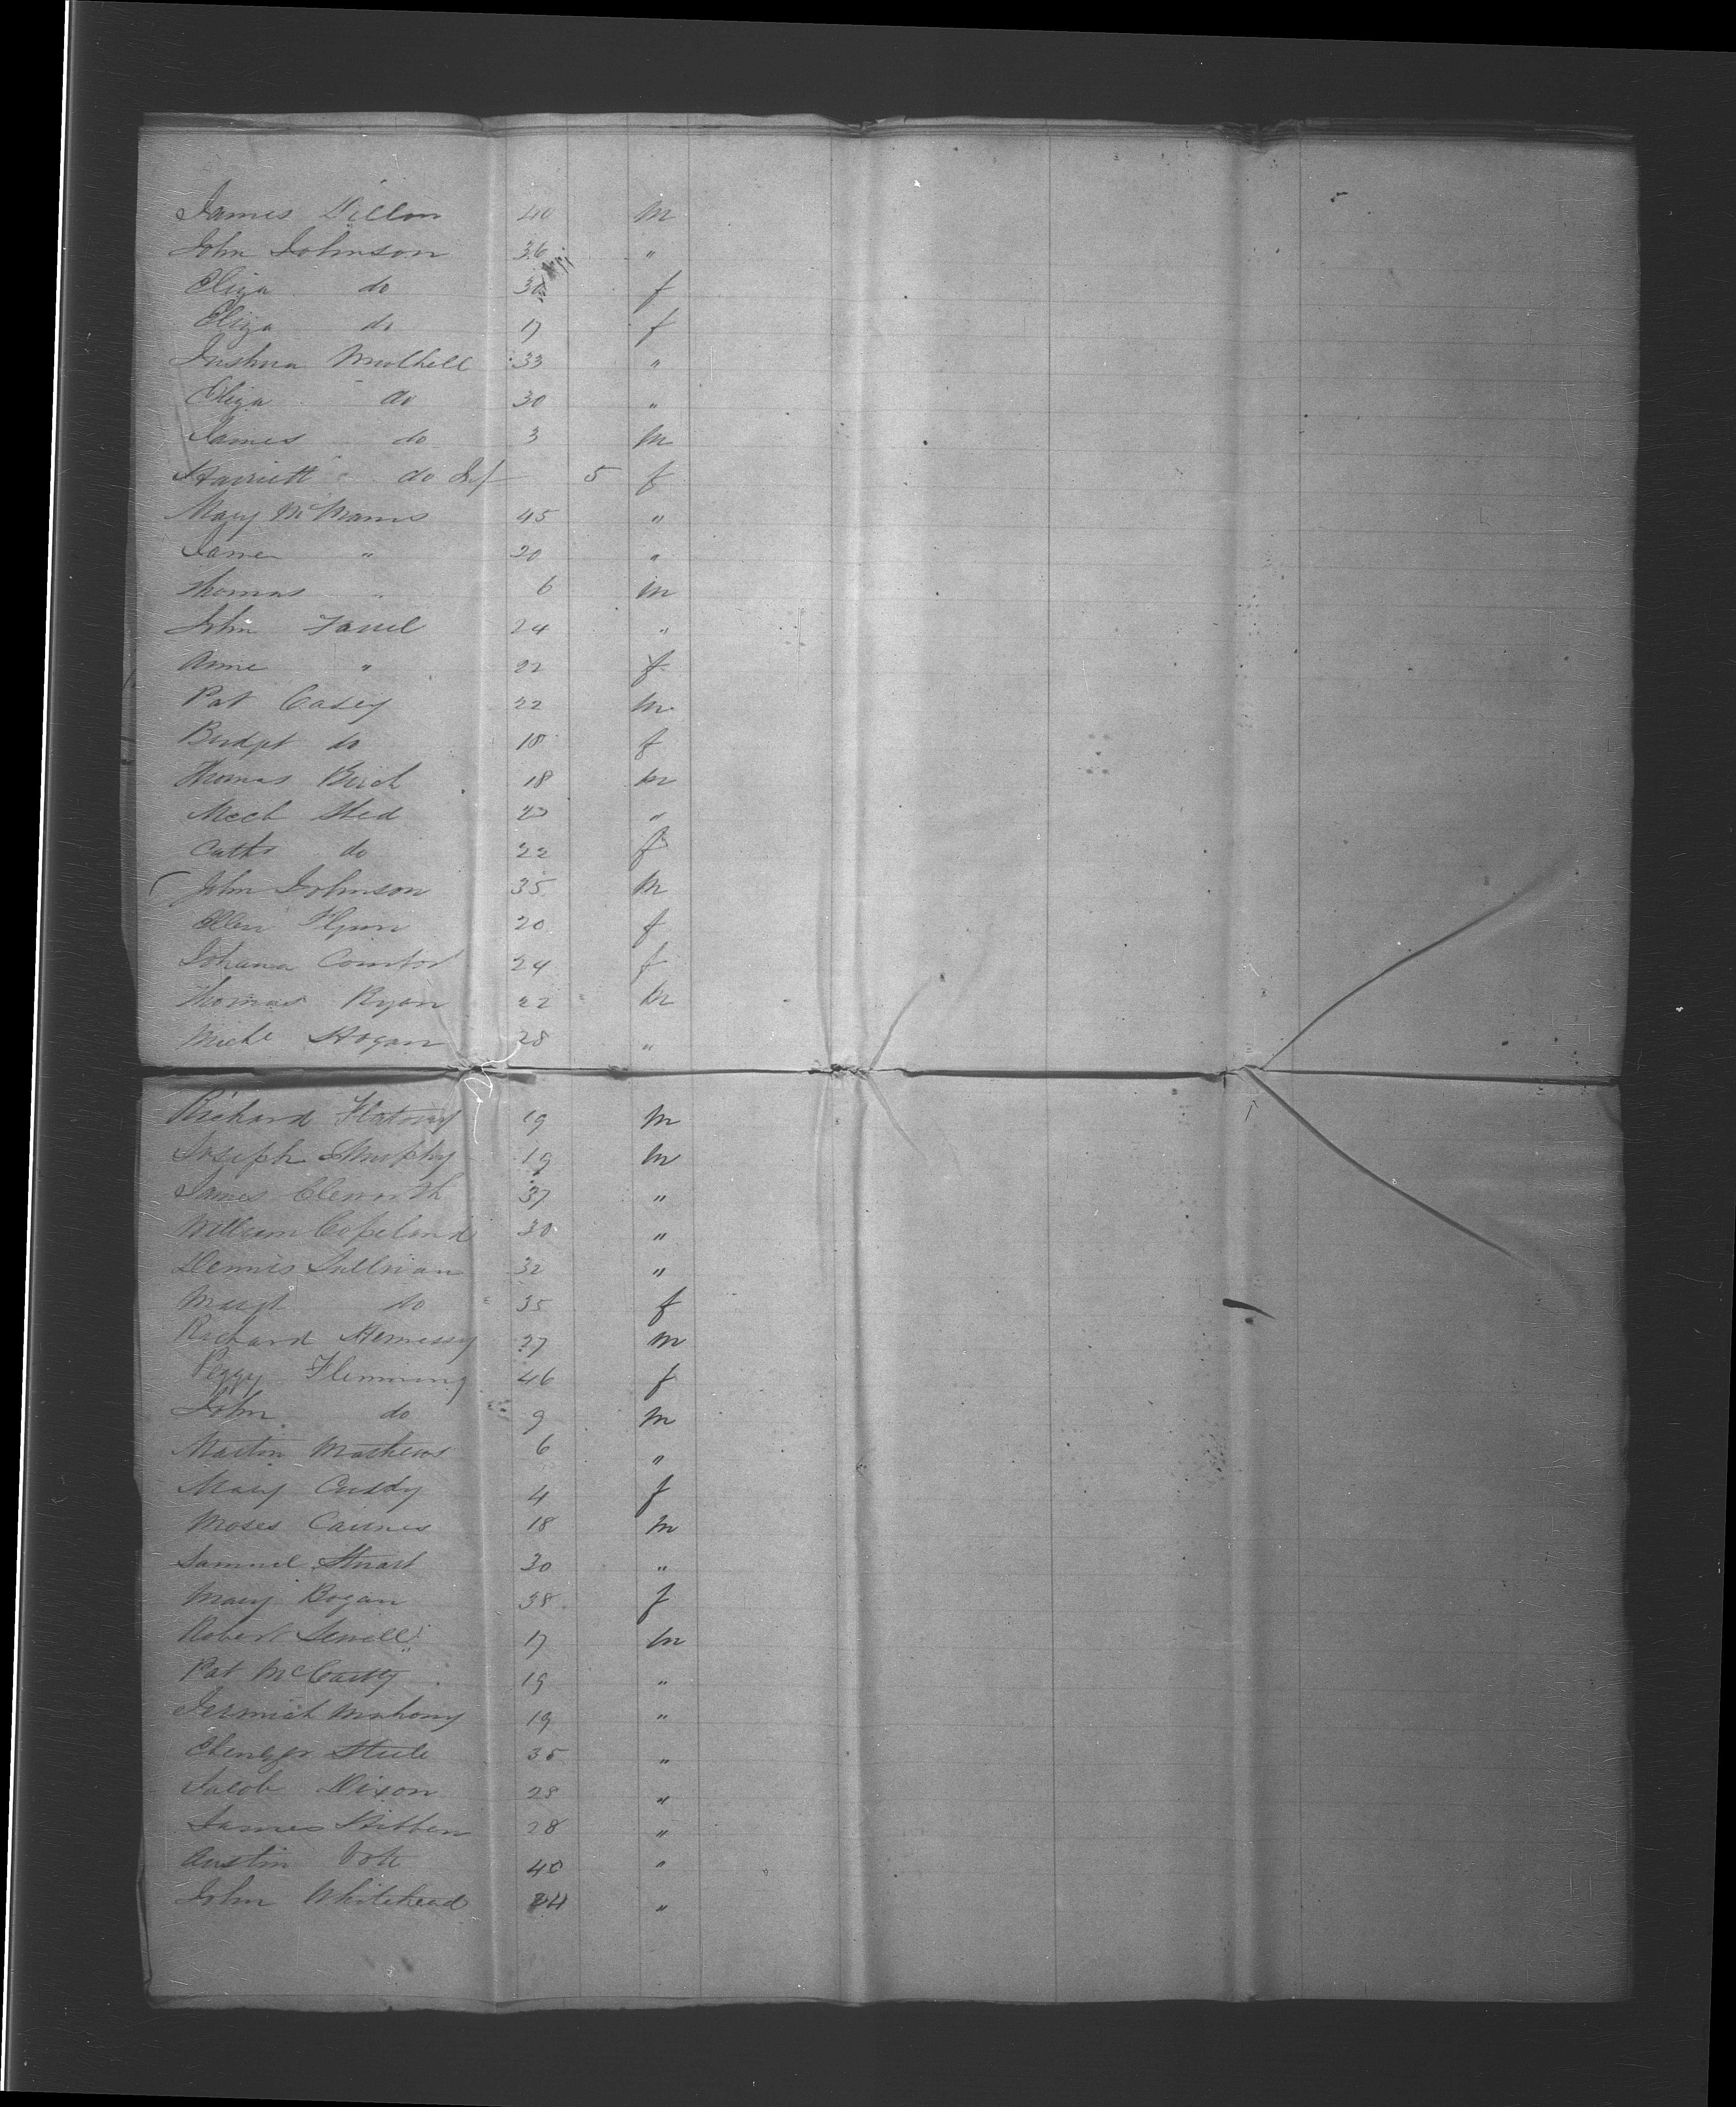 James Dillon 40 m
John Johnson 36 "
Eliza do 30 f
Eliza do 17 f
Joshua Mulhell 33 "
Eliza do 30 "
James do 3 m
Harriett do Inf 5 f
Mary McManus 45 "
Jane " 20 "
Thomas " 6 m
John Farrel 24 "
Anne " 22 f
Pat Casey 22 m
Bridget do 18 f
Thomas Birch 18 m
Mich 23 "
Cath do 22 f
John Johnson 35 m
Ellen Flynn 20 f
Johana 24 f
Thomas Ryan 22 m
Michl Hogan 28 "
Richard 19 m
Joseph Murphy 19 m
James Cleworth 37 "
William Copeland 30 "
Dennis Sullivan 32 "
Margt do 35 f
Richard Hennessy 27 m
Peggy Flemming 46 f
John do 9 m
Martin Mathews 6 "
Mary Cuddy 4 f
Moses Cairnes 18 m
Samuel Stuart 30 "
Mary Bogan 38 f
Robert Sewell 17 m
Pat McCarty 19 "
Jermiah Mahony 19 "
Steele 35 "
Jacob Dixon 28 "
James 28 "
Austin 40 "
John Whitehead 24 "